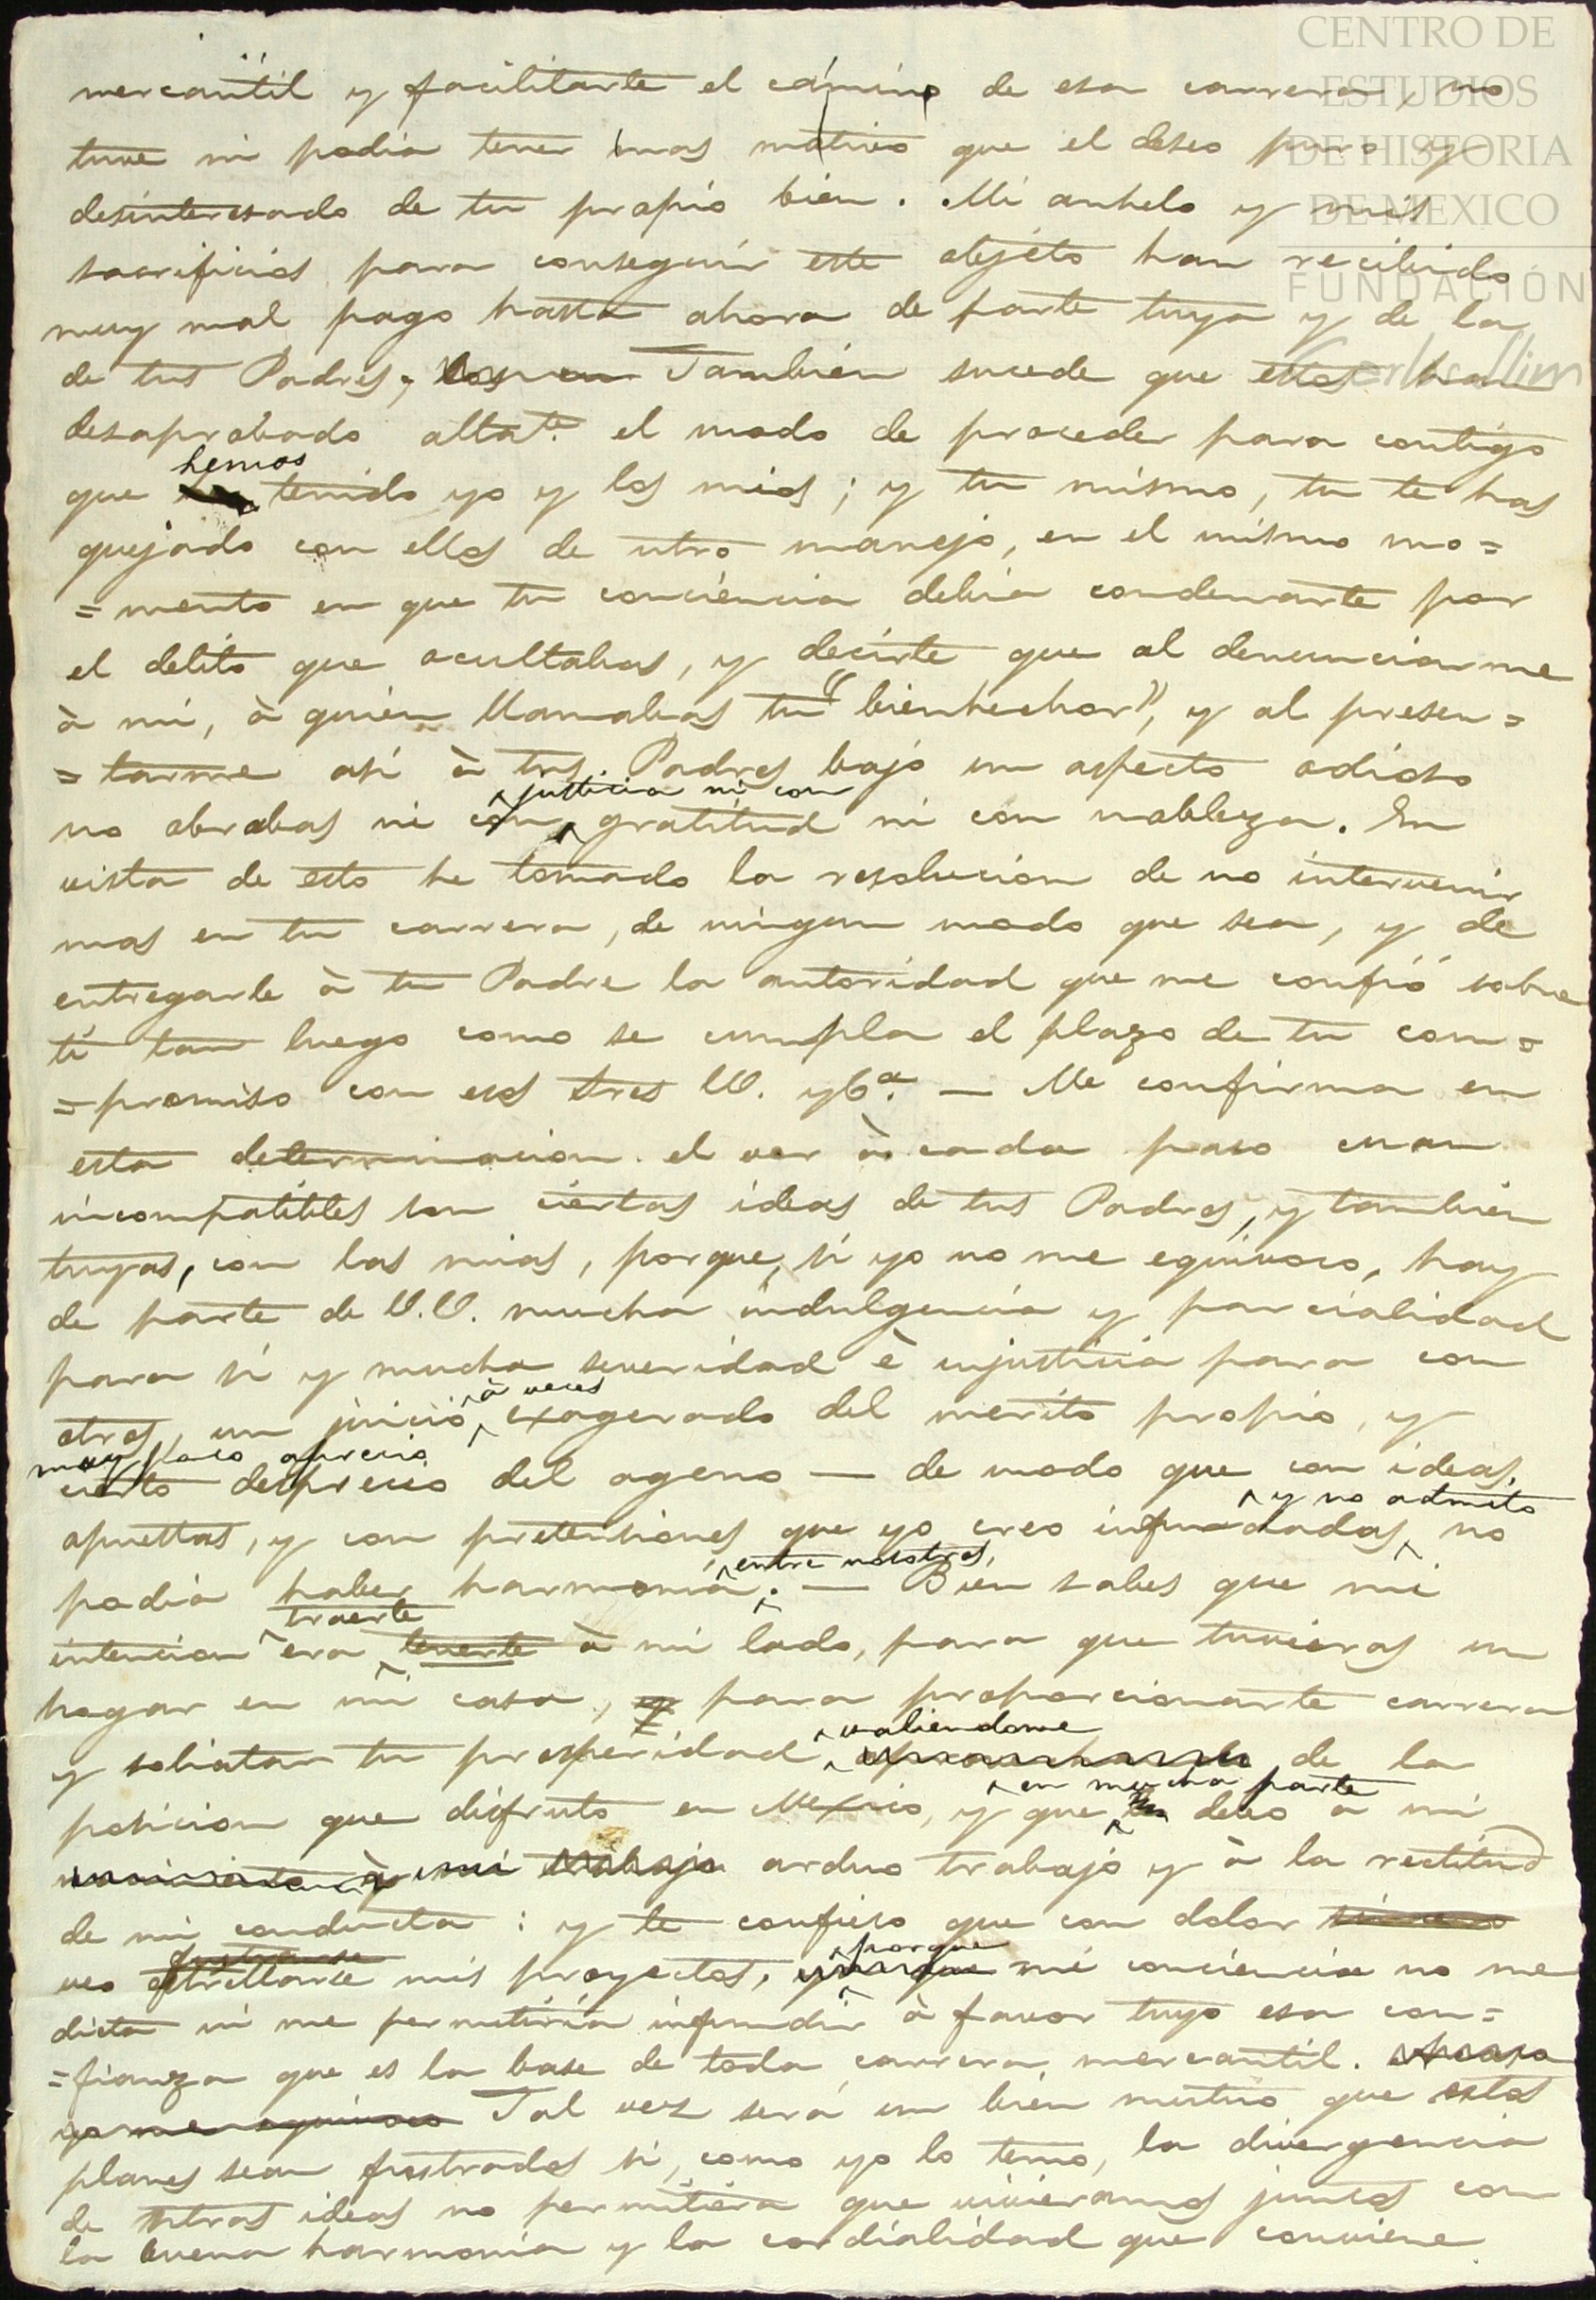 CENTRO DE
ESTUDIOS
DE HISTORIA
DE MEXICO
FUNDACIÓN
Carlos Slim
mercantil y facilitarte el camino de esa carrera, no
tuve ni podia tener mas motivo que el deseo puro y
desinteresado de tu propio bien. Mi anhelo y mis
sacrificios para conseguir este objéto han recibido
muy mal pago hasta ahora de parte tuya y de la
de tus Padres, Tambien sucede que ellos han
desaprobado altate. el modo de proceder para contigo
hemos
que tenido yo y los mios; y tu mismo, tu te has
quejado con ellos de ntro manejo, en el mismo mo=
=mento en que tu conciencia debia condenarte por
el delito que ocultabas, y decirte que al denunciarme
à mi, à quien llamabas tu "bienhechor", y al presen=
=tarme asi à tus Padres bajo un aspecto odioso
justicia ni con
no obrabas ni con gratitud ni con nobleza. En
vista de esto he tomado la resolucion de no intervenir
mas en tu carrera, de ningun modo que sea, y de
entregarle à tu Padre la autoridad que me confió sobre
ti tan luego como se cumpla el plazo de tu com=
=promiso con esos Sres W. y Ca. — Me confirma en
esta determinacion el ver à cada paso cuan
incompatibles son ciertas ideas de tus Padres, y tambien
tuyas, con las mias, porque, si yo no me equivoco, hay
de parte de V.V. mucha indulgencia y parcialidad
para si y mucha severidad è injusticia para con
à veces
otros, un juicio exagerado del merito propio, y
muy poco aprecio
cierto desprecio del ageno — de modo que con ideas
y no admito
opuestas, y con pretensiones que yo creo infundadas, no
entre nosotros,
podia haber harmonia. — Bien sabes que mi
traerte
intencion era tenerte à mi lado, para que tuvieras un
hogar en mi casa, y para proporcionarte carrera
valiendome
y solicitar tu prosperidad de la
en mucha parte
posicion que disfruto en Mexico, y que debo a mi
à mi trabajo arduo trabajo y à la rectitud
de mi conducta: y te confieso que con dolor sincero
frustrarse
porque
veo estrellarse mis proyectos, mi conciencia no me
dicta ni me permitiria infundir à favor tuyo esa con=
=fianza que es la base de toda carrera mercantil. Acaso
yo me equivoco Tal vez será un bien mutuo que estos
planes sean frustrados si, como yo lo temo, la divergencia
de ntras ideas no permitiera que vivieramos juntos con
la buena harmonia y la cordialidad que conviene